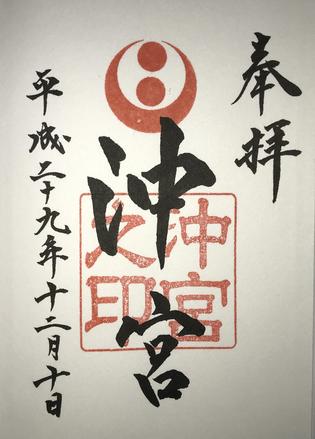 奉拝
沖宮
沖宮
之印
平成二十九年十二月十日